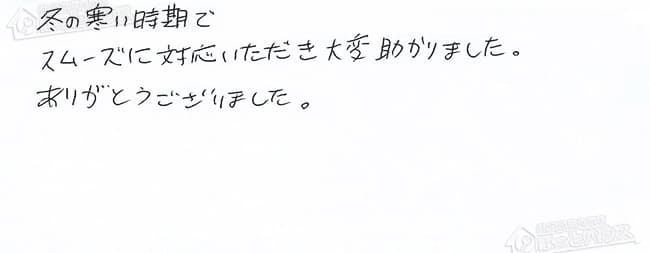 冬の寒い時期で
スムーズに対応いただき大変助かりました。
ありがとうございました。